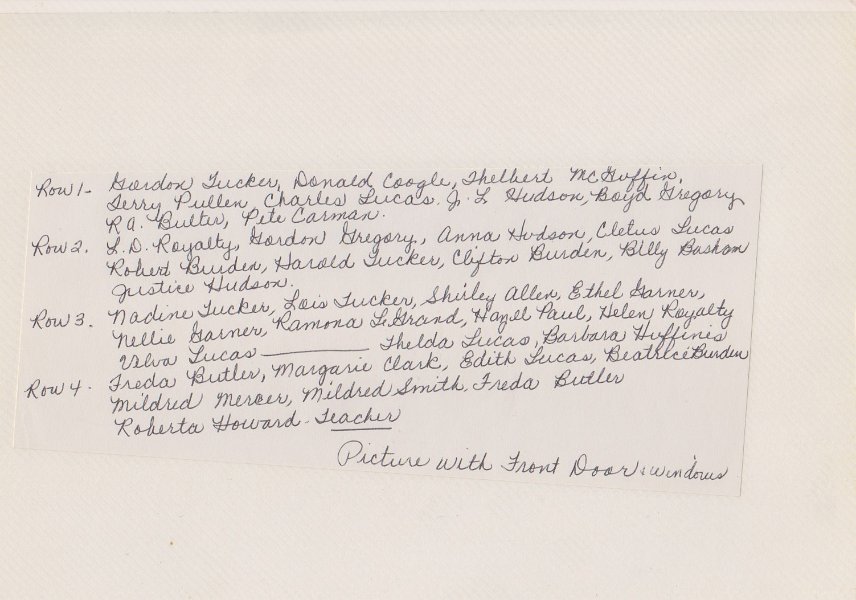 Row 1- Gordon Tucker, Donald Coogle, Thelbert McGuffin,
Terry Pullen, Charles Lucas, J. L. Hudson, Boyd Gregory
R.A. Butler, Pete Carman.
Row 2. L.D. Royalty, Gordon Gregory, Anna Hudson, Cletus Lucas
Robert Burden, Harold Tucker, Clifton Burden, Billy Basham
Justice Hudson.
Row 3. Nadine Tucker, Lois Tucker, Shirley Allen, Ethel Garner,
Nellie Garner, Ramona LeGrand, Hazel Paul, Helen Royalty
Velva Lucas __________ Thelda Lucas, Barbara Huffines
Row 4. Freda Butler, Margarie Clark, Edith Lucas, Beatrice Burden
Mildred Mercer, Mildred Smith, Freda Butler
Roberta Howard - Teacher
Picture with Front Door & windows